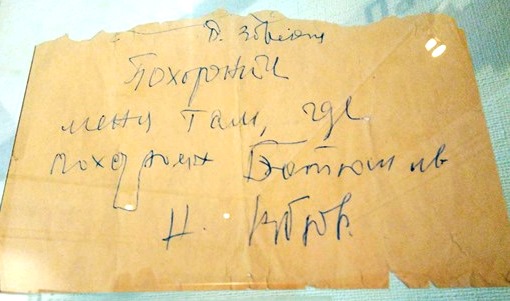 Похороните
меня там, где
похоронен Батюшков
Н. Рубцов